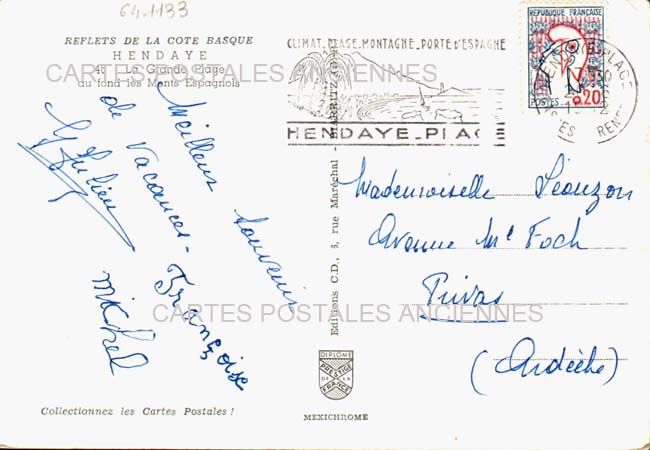 64.1133
REFLETS DE LA COTE BASQUE
HENDAYE
La Grande Plage
au fond les Monts Espagnols
CARTES POSTALES ANCIENNES
Meilleur Souvenir
de Vacances -
Françoise
Julien
Michel
Collectionnez les Cartes Postales !
CLIMAT. PLAGE. MONTAGNE. PORTE D'ESPAGNE
HENDAYE-PLAGE
REPUBLIQUE FRANCAISE
POSTES 0.20
HENDAYE PLAGE
Editions C.D., 6, rue Maréchal - BIARRITZ
Mademoiselle Léouzon
Avenue Mal Foch
Privas
(Ardèche)
CARTES POSTALES ANCIENNES
DIPLOME
PRESTIGE
DE LA
FRANCE
MEXICHROME